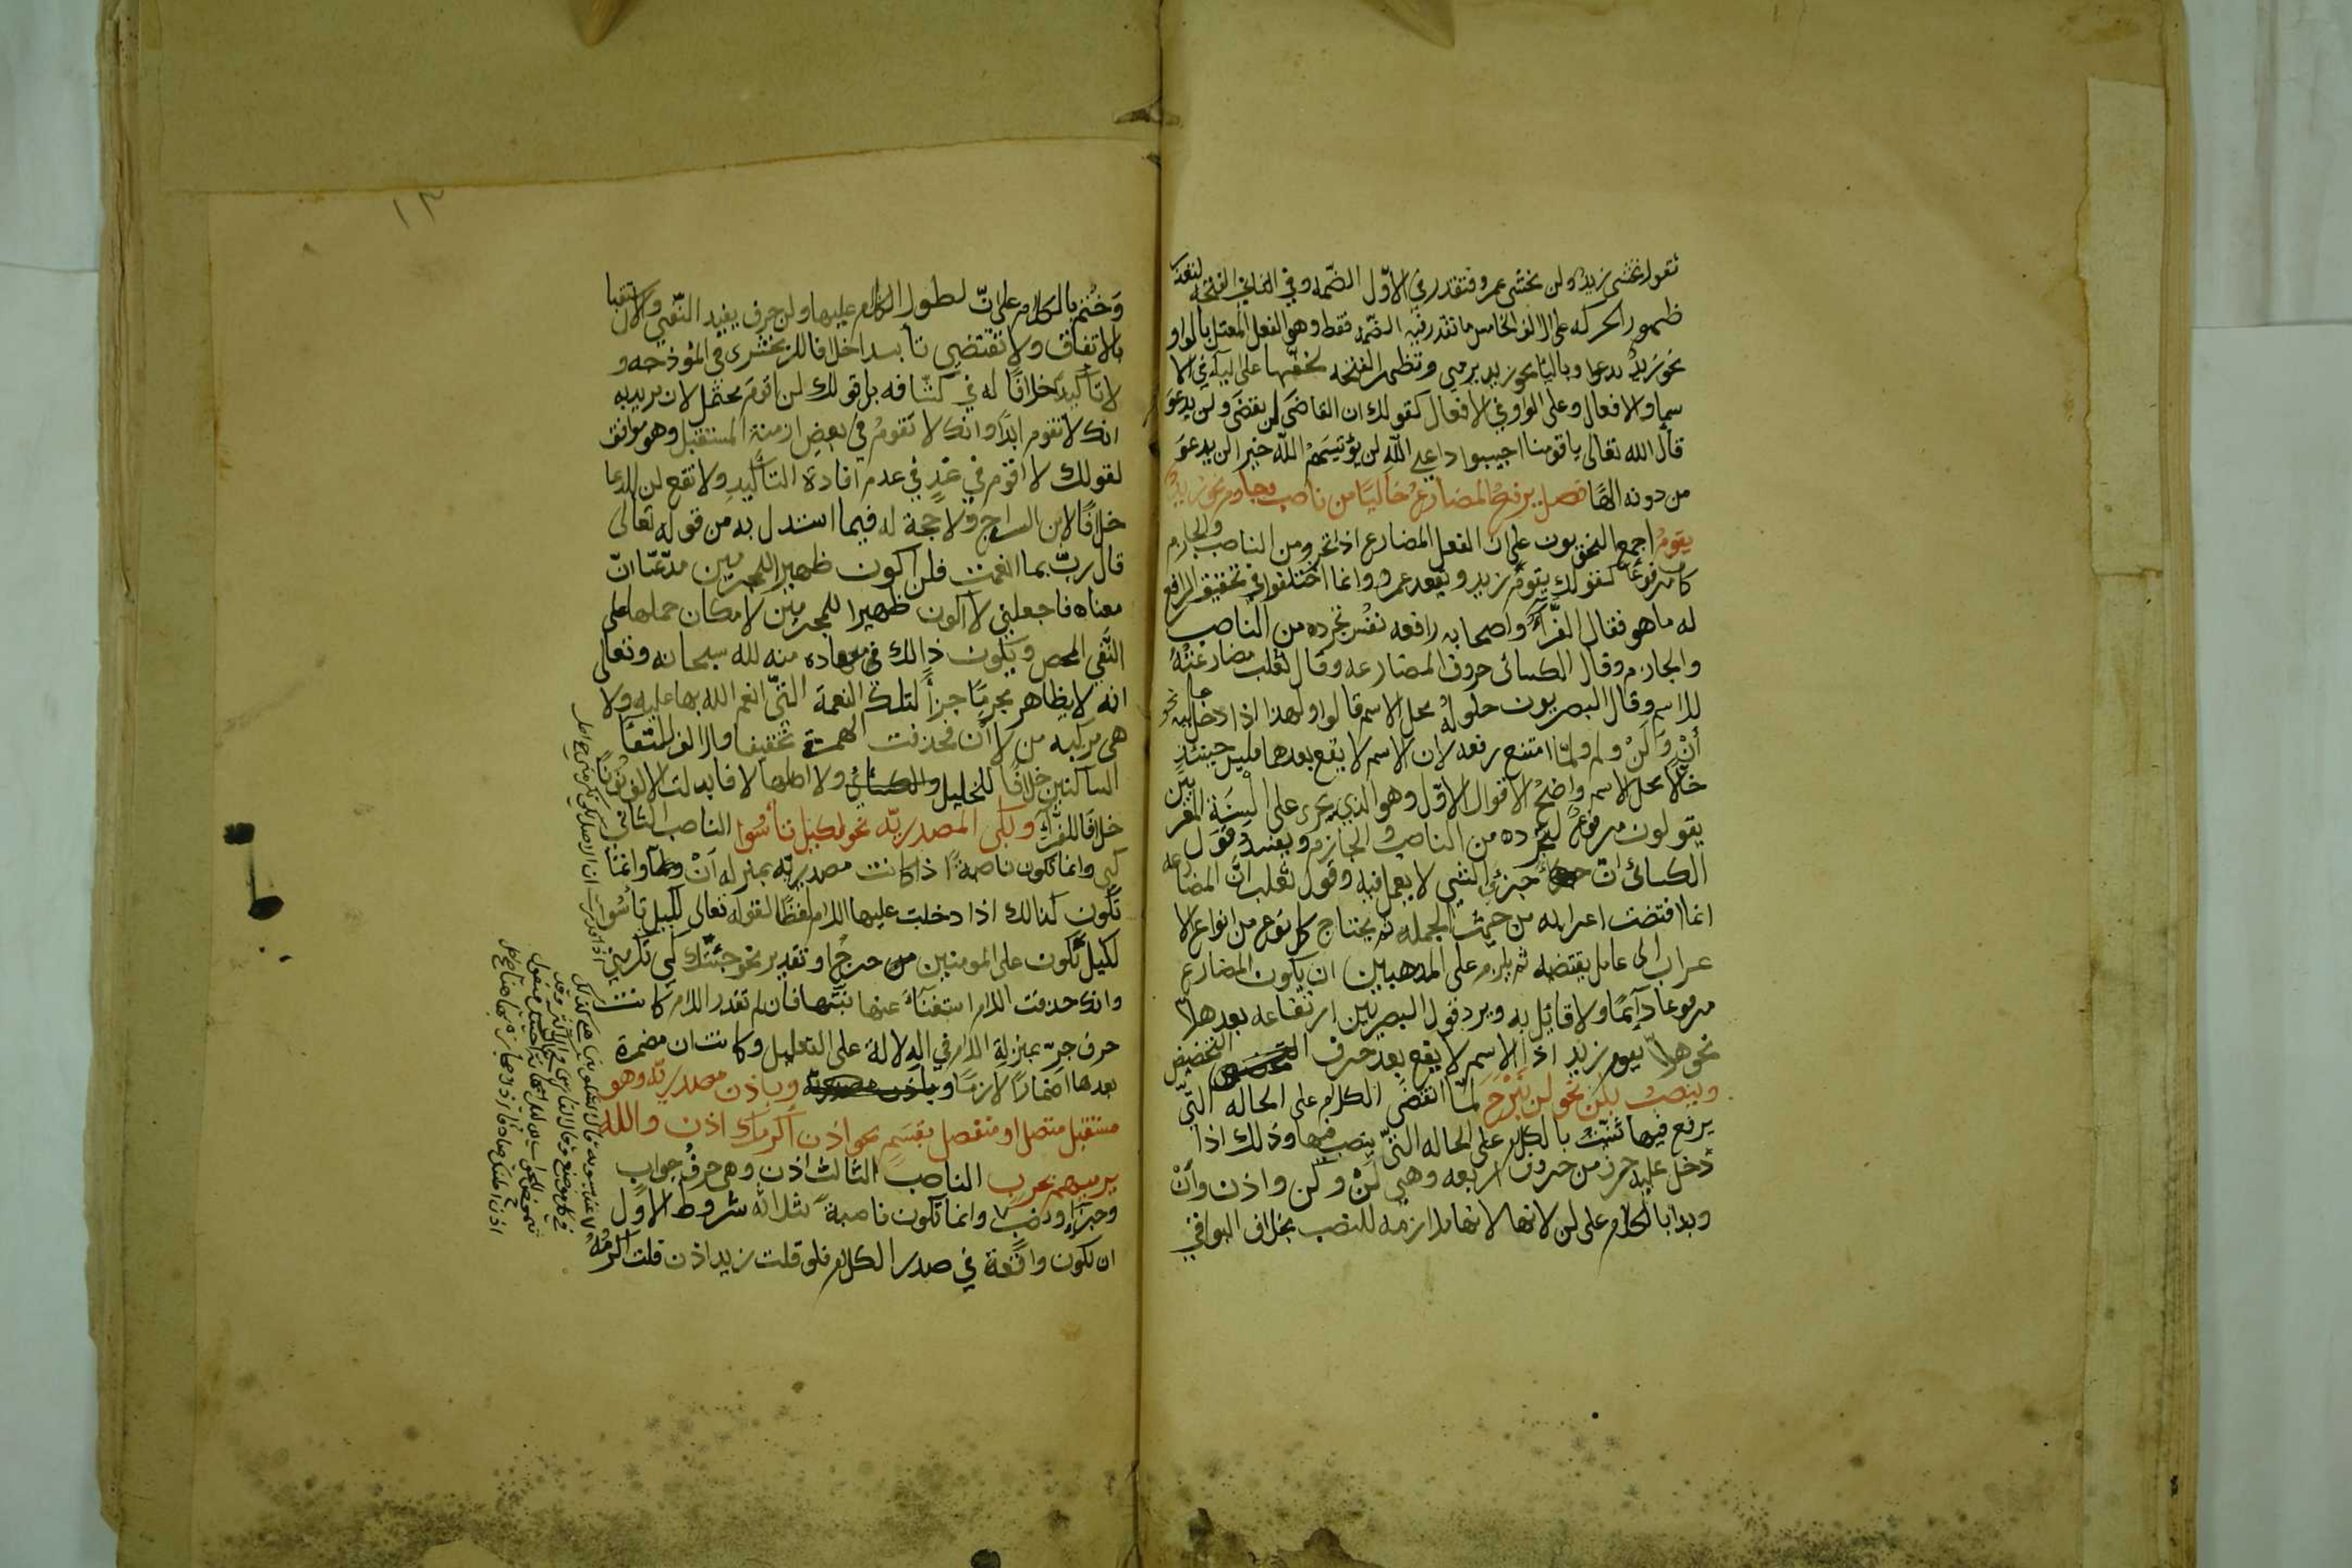 تقول يخشى زيد ولن يخشى عمرو فتقدر في الاول الضمه وفي الثاني الفتحه لتعذر
ظهور الحركه على الالف الخامس ما تقدر فيه الضمه فقط وهو الفعل المعتل بالواو
نحو زيد يدعوا وباليا نحو زيد يرمي وتظهر الفتحه لخفتها على اليآء في الا
سما والافعال وعلى الواو في الافعال كقولك ان القاضي لن يقضي ولن يدعو
قال الله تعالى ياقومنا اجيبوا داعي الله لن يؤتيهم الله خيرا لن يدعو
من دونه الها فصل يرفع المضارع خاليا من ناصب وجازم نحو زيد
يقوم اجمع النحويون على ان الفعل المضارع اذا تجرد من الناصب والجازم
كان مرفوعا كقولك يقوم زيد ويقعد عمرو وانما اختلفوا في تحقيق الرافع
له ما هو فقال الفرآء واصحابه رافعه نفس تجرده من الناصب
والجازم وقال الكسائى حروف المضارعه وقال ثعلب مضارعته
للاسم وقال البصريون حلوله محل الاسم قالوا ولهذا اذا دخل عليه نحو
أن ولن ولم ولما امتنع رفعه لان الاسم لا يقع بعدها فليس حينئذ
حالا محل الاسم واضح الاقوال الاول وهو الذي يجرى على السنة المعربين
يقولون مرفوع لتجرده من الناصب والجازم ويفسد قول
الكسائى ان جزء الشي لا يعمل فيه وقول ثعلب ان المضارعه
انما اقتضت اعرابه من حيث الجمله ثم يحتاج كل نوع من انواع الا
عراب الى عامل يقتضيه ثم يلزم على المذهبين ان يكون المضارع
مرفوعا دآئما ولا قائل به ويرد قول البصريين ارتفاعه بعد هلا
نحو هلا يقوم زيد اذ الاسم لا يقع بعد حرف التخضيض
وينصب بلن نحو لن نبرح لما انقضى الكلام على الحاله التي
يرفع فيها ثنيت بالكلام على الحاله التي ينصب فيها وذلك اذا
دخل عليه حرف من حروف اربعه وهي لن وكي واذن وأن
وبدا بالكلام على لن لانها لانها ملازمه للنصب بخلاف البواقي
١٣
وختم بالكلام على ان لطول الكلام عليها ولن حرف يفيد النفي والاستقبال
بالاتفاق ولا تقتضي تأبيدا خلافا للزمخشرى في انموذجه و
لا تأكيدا خلافا له في كشافه بل قولك لن اقوم محتمل لان يريد به
انك لا تقوم ابدا وانك لا تقوم في بعض ازمنة المستقبل وهو موافق
لقولك لا اقوم في غد في عدم افادة التأكيد ولا تقع لن للدعا
خلافا لابن السراج ولا حجة له فيما استدل به من قوله تعالى
قال رب بما انعمت فلن اكون ظهيرا للمجرمين مدعيا ان
معناه فاجعلني لا اكون ظهيرا للمجرمين لامكان حملها على
النفي المحص ويكون ذالك في معاده منه لله سبحانه وتعالى
انه لا يظاهر مجرما جزآ لتلك النعمة التي انعم الله بها عليه ولا
هي مركبه من لا ان فحذفت الهمزة تخفيفا والالف لالتقا
الساكنين خلافا للخليل والكسائى ولا اصلها لا فابدلت الالف نونا
خلافا للفرآء وبكي المصدريه نحو لكيلا تأسوا الناصب الثاني
كي وانما تكون ناصبة اذا كانت مصدريه بمنزله أن وانما
تكون كذالك اذا دخلت عليها اللام لفظا لقوله تعالى لكيلا تأسوا
لكيلا تكون على المومنين حرج او تقدير نحو جئتك كي تكرمني
وانك حذفت اللام استغنآء عنها بنيتها فان لم تقدر اللام كانت
حرف جر بمنزلة اللام في الدلالة على التعليل وكانت ان مضمرة
بعدها اضمارا لازما وباذن مصدريه وهو
مستقبل متصل او منفصل بقسم نحو اذن اكرمك اذن والله
نرميهم بحرب الناصب الثالث اذن وهي حرف جواب
وجزآء ونصب وانما تكون ناصبة بثلاثه شروط الاول
ان تكون واقعة في صدر الكلام فلو قلت زيد اذن قلت اكرمه